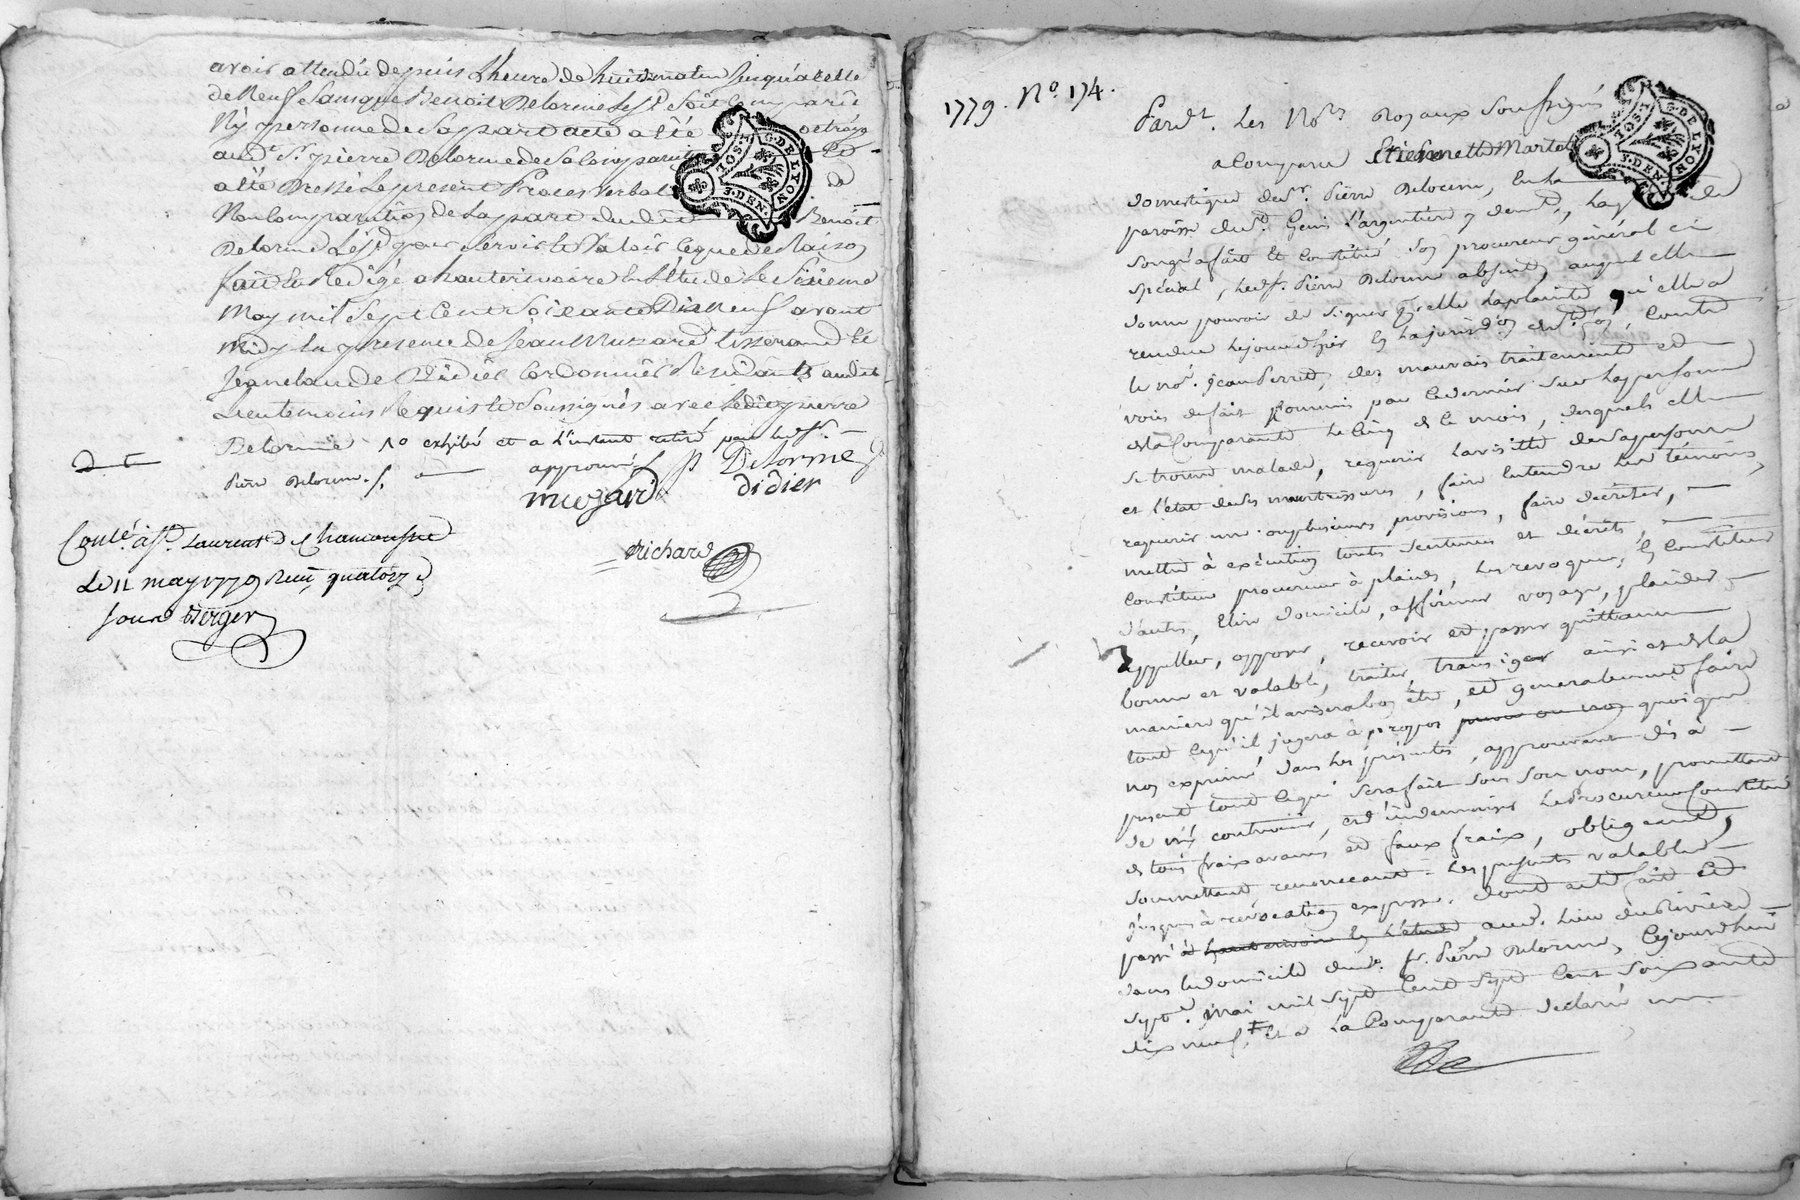 avoir attendu depuis L'heure de huit matin Jusqu'a celle
de Neuf Sans que Benoit Delorme Le f.d Soit Comparu
Ny personne de Sa part acte a êté octroyé
aud.t S.r pierre Delorme de Sa Comparution Et
a êté Dressé Le present Proces verbal de
Non Comparution de La part dudit Benoit
Delorme
fait et Redigé a hauterivoire En l'Etude Le Sixieme
May mil Sept Cent Soixante Dix Neuf avant
midy En presence de Jean Muzard tisserand Et
Jean claude Didier Cordonnier Residants audit
Lieu temoins Requis et Soussignés avec Ledit pierre
Delorme 1o exhibé et a l'instant retiré par led. s.r
pierre Delorme
approuvé P Delorme
muzard didier
Conlé à S.t Laurent D Chamousset
Le 11 may 1779 Reçu quatorze
sous Berger
Richard
G. DE LYON
1779. No. 174.
Pard.t Les No.res Royaux Soussignés
a Comparu Etiennette Martel
domestique de S.r Pierre Delorme,
paroisse de S.t Genis L'argentiere y demt.,
son gré a fait et Constitué Son procureur général et
spécial, led. s. Pierre Delorme absent, auquel elle
donne pouvoir de signer pr elle La plainte, qu'elle a
rendue Cejourd'hui en La jurisd.on, Contre
le no.é Jean Perret, des mauvais traitements et
voies de fait Commis par Ce dernier sur La personne
de La Comparante Le Cinq de Ce mois, desquels elle
se trouve malade, requerir La visitte de Sa personne
et l'état de Ses meurtrissures, faire Entendre Les témoins,
requerir une ou plusieurs provisions, faire décréter,
mettre à exécution toutes Sentences et décrets,
Constituer procureur à plaids, Les revoquer, En Constituer
d'autres, Elire domicile, affirmer voyage, plaider,
appeller, opposer, recevoir et passer quittance
bonne et valable, traiter, transiger ainsi et de La
maniere qu'il avisera bon être, et generalement faire
tout Ce qu'il jugera à propos quoique
non exprimé dans Les présentes, approuvant dès à
présent tout Ce qui Sera fait Sous Son nom, promettant
de n'y contrevenir, et d'indemniser Le Procureur Constitué
de tous fraix avances et faux fraix, obligeant,
soumettant renoncant. Les présentes valables
jusques à révocation expresse. Dont acte fait et
passé à hauterivoire En L'étude aud. Lieu
dans Le domicile dud. sr. Pierre Delorme, Cejourd'hui
sept.e mai mil Sept Cent Soixante
dix neuf, Et a La Comparante déclaré ne